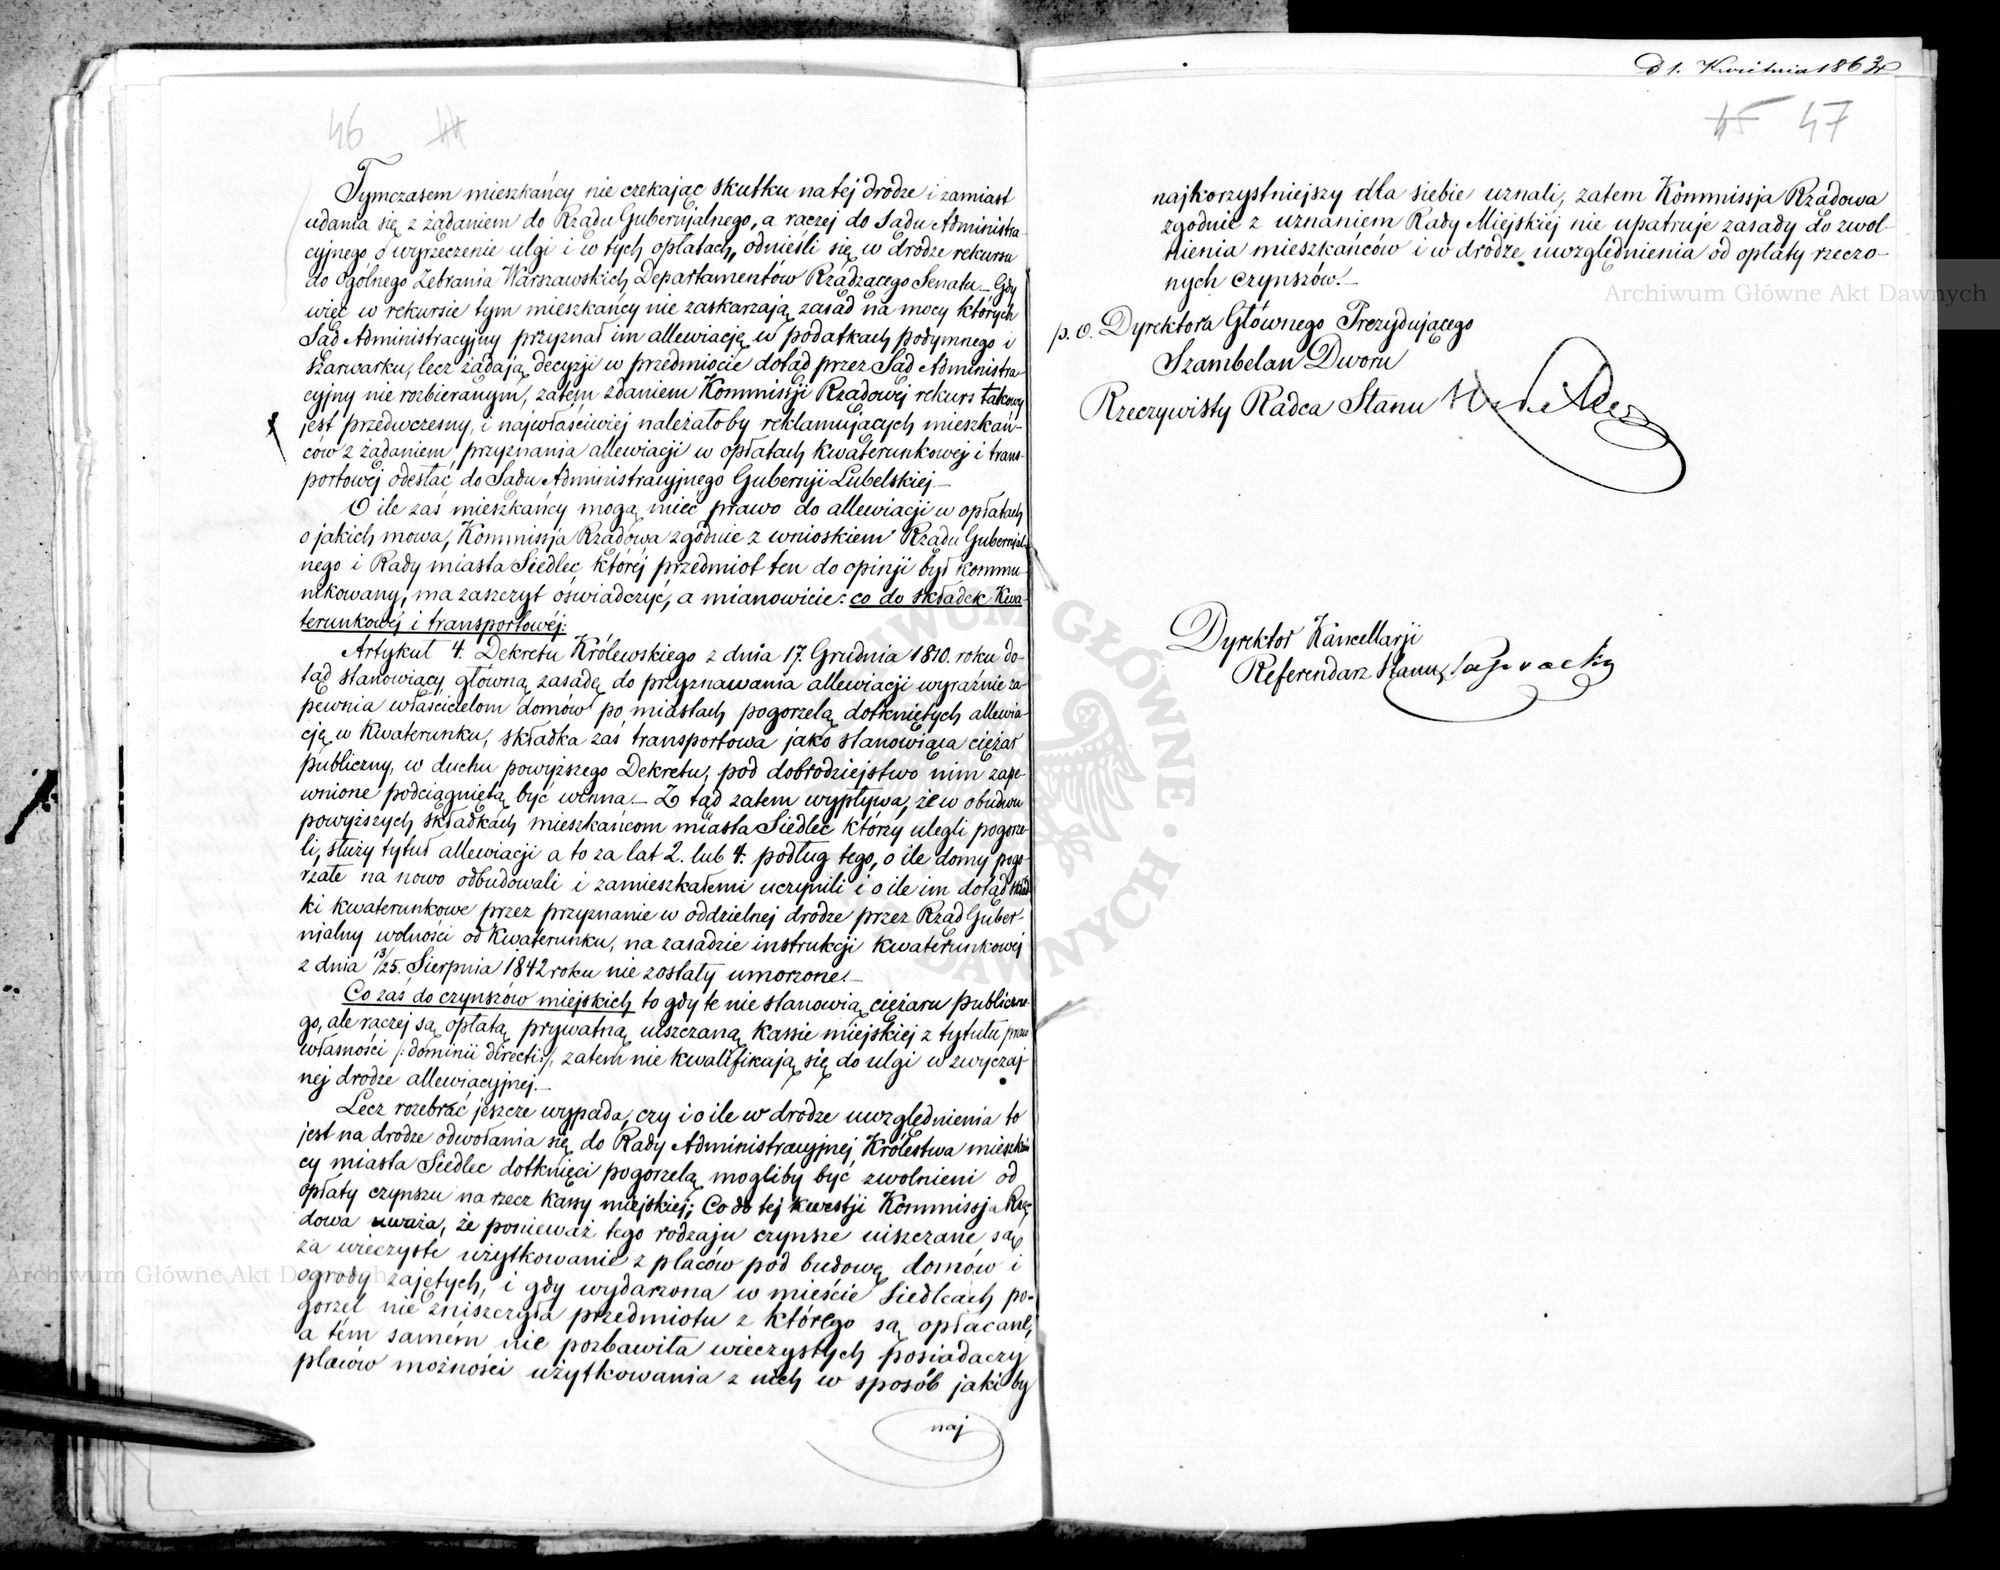 46 44
Tymczasem mieszkańcy nie czekając skutku na tej drodze i zamiast
udania się z żądaniem do Rządu Gubernjalnego, a raczej do Sądu Administra-
cyjnego o wyrzeczenie ulgi i w tych opłatach, odnieśli się w drodze rekursu
do Ogólnego Zebrania Warszawskich Departamentów Rządzącego Senatu. – Gdy
więc w rekursie tym mieszkańcy nie zaskarzają zasad na mocy których
Sąd Administracyjny przyznał im allewiację w podatkach podymnego i
szarwarku, lecz żądają decyzji w przedmiocie dotąd przez Sąd Administra-
cyjny nie rozbieranym, zatem zdaniem Kommissji Rządowej rekurs takowy
jest przedwczesny, i najwłaściwiej należałoby reklamujących mieszkań-
ców z żądaniem przyznania allewiacji w opłatach kwaterunkowej i trans-
portowej odesłać do Sądu Administracyjnego Gubernji Lubelskiej. –
O ile zaś mieszkańcy mogą mieć prawo do allewiacji w opłatach
o jakich mowa, Kommissja Rządowa zgodnie z wnioskiem Rządu Gubernjal-
nego i Rady miasta Siedlec, której przedmiot ten do opinji był kommu-
nikowany, ma zaszczyt oświadczyć, a mianowicie: co do składek Kwa-
terunkowej i transportowéj:
Artykuł 4. Dekretu Królewskiego z dnia 17. Grudnia 1810. roku do-
tąd stanowiący główną zasadę do przyznawania allewiacji wyraźnie za-
pewnia właścicielom domów po miastach pogorzelą dotkniętych allewia-
cję w Kwaterunku, składka zaś transportowa jako stanowiąca ciężar
publiczny, w duchu powyższego Dekretu, pod dobrodziejstwo nim zape-
wnione podciągniętą być winna. – Z tąd zatem wypływa, że w obudwu
powyższych składkach mieszkańcom miasta Siedlec którzy ulegli pogorze-
li, służy tytuł allewiacji a to za lat 2. lub 4. podług tego, o ile domy pogo-
rzałe na nowo odbudowali i zamieszkałemi uczynili i o ile im dotąd skład-
ki kwaterunkowe przez przyznanie w oddzielnej drodze przez Rząd Guber-
njalny wolności od Kwaterunku, na zasadzie instrukcji kwaterunkowej
z dnia 13/25. Sierpnia 1842 roku nie zostały umorzone. –
Co zaś do czynszów miejskich to gdy te nie stanowią ciężaru publiczne-
go, ale raczej są opłatą prywatną uiszczaną Kassie miejskiej z tytułu praw
własności /: dominii directi :/, zatem nie kwalifikują się do ulgi w zwyczaj-
nej drodze allewiacyjnej. –
Lecz rozebrać jeszcze wypada, czy i o ile w drodze uwzględnienia to
jest na drodze odwołania się do Rady Administracyjnej Królestwa mieszkań-
cy miasta Siedlec dotknięci pogorzelą mogliby być zwolnieni od
opłaty czynszu na rzecz Kassy miejskiej; Co do tej kwestji Kommissja Rzą-
dowa uważa, że ponieważ tego rodzaju czynsze uiszczane są
za wieczyste użytkowanie z placów pod budowę domów i
ogrody zajętych, i gdy wydarzona w mieście Siedlcach po-
gorzel nie zniszczyła przedmiotu z którego są opłacane,
a tém samém nie pozbawiła wieczystych posiadaczy
placów możności użytkowania z nich w sposób jaki by
naj
D 1. Kwietnia 1863
45 47
najkorzystniejszy dla siebie uznali, zatem Kommissja Rządowa
zgodnie z uznaniem Rady Miejskiéj nie upatruje zasady do zwol-
nienia mieszkańców i w drodze uwzględnienia od opłaty rzeczo-
nych czynszów. –
p. o. Dyrektora Głównego Prezydującego
Szambelan Dworu
Rzeczywisty Radca Stanu
Dyrektor Kancellarji
Referendarz Stanu
Archiwum Główne Akt Dawnych
Archiwum Główne Akt Dawnych
ARCHIWUM GŁÓWNE AKT DAWNYCH